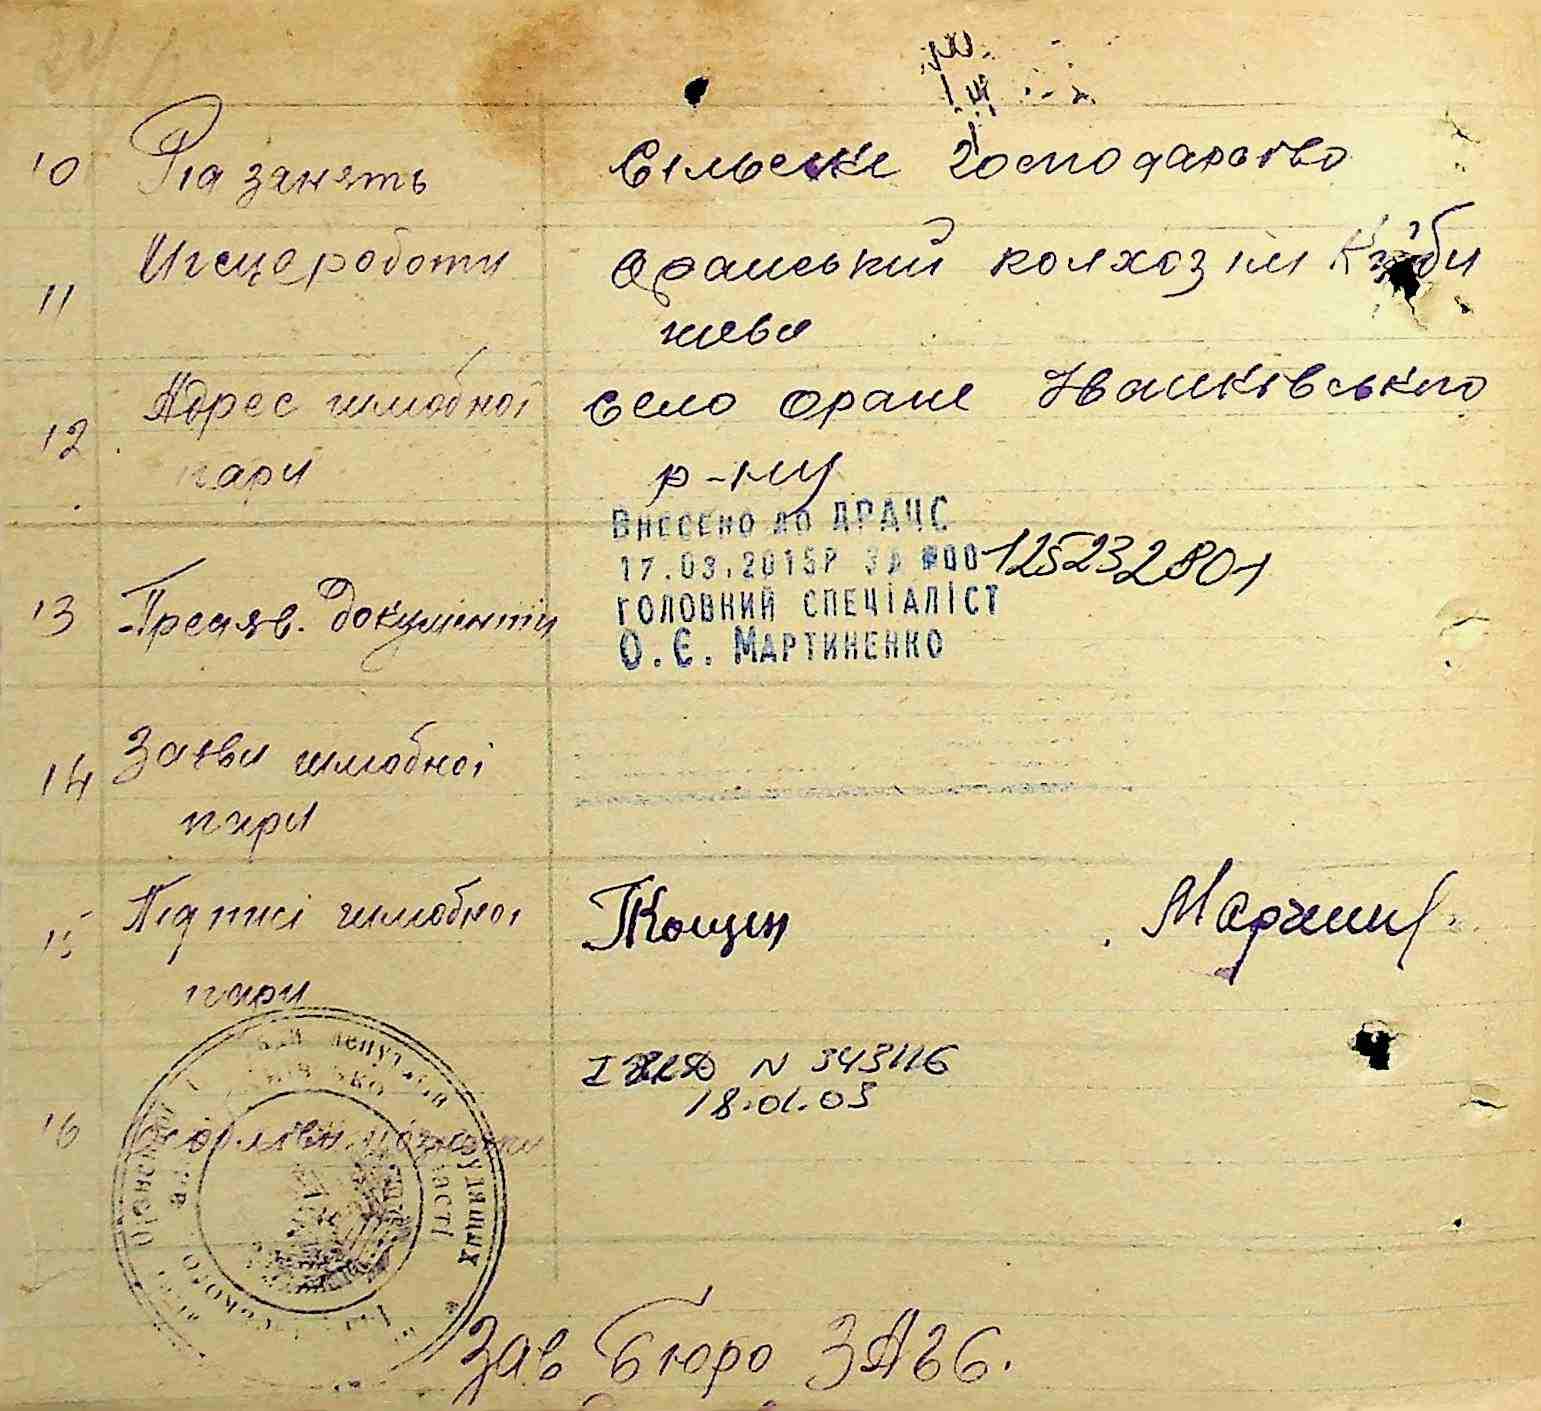 10 Рід занять Сільське господарство
11 Місце роботи Оранський колхоз ім Куйби
шева
12 Адрес шлюбної село Оране Іванківського
пари р-ну
ВНЕСЕНО ДО ДРАЦС
17.03.2015Р ЗА №00125232801
ГОЛОВНИЙ СПЕЦІАЛІСТ
О.Є. МАРТИНЕНКО
13 Предяв. документи
14 Заяви шлюбної
пари
15 Підписі шлюбної
пари
N 343116
18.01.03
16
депутатів
трудящих
Зав Бюро ЗАГС.